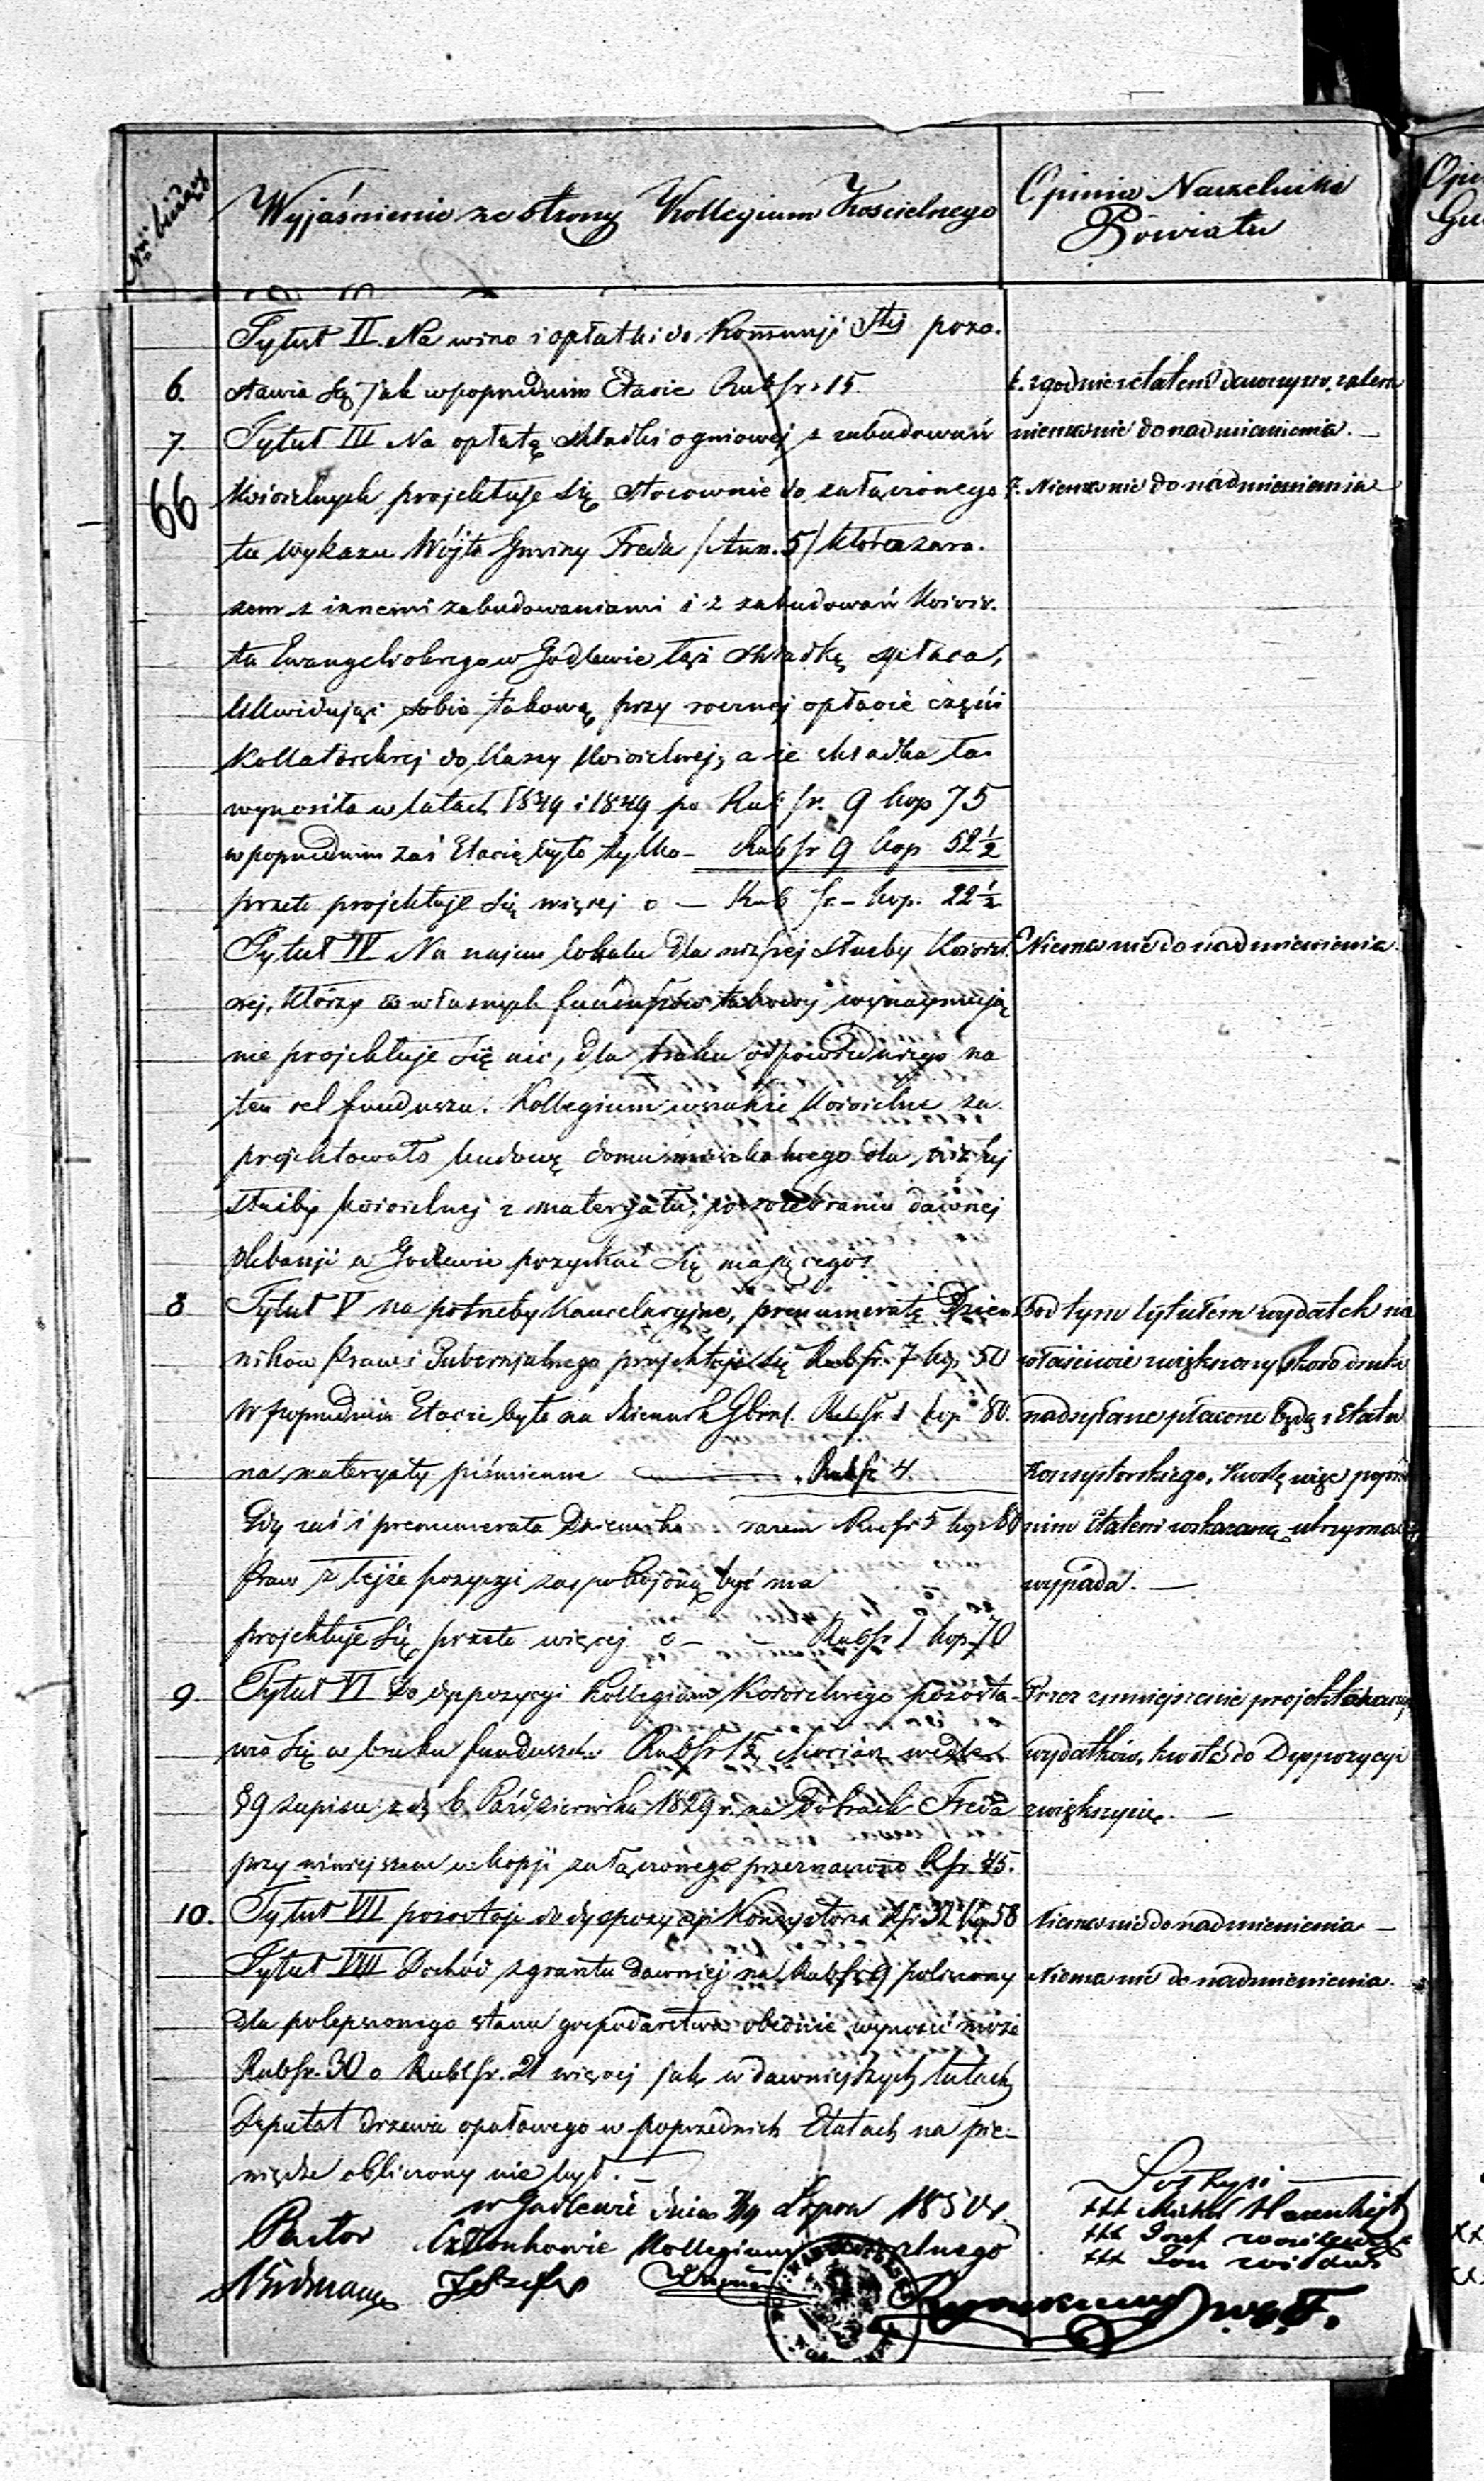 Nr bieżący
Wyjaśnienie ze strony Kollegium Kościelnego
Opinia Naczelnika
Powiatu
Tytuł II. Na wino i opłatki do Kommunji Stej pozo-
6. stawia się jak w poprzednim Etacie Rub sr. 15.
7. Tytuł III Na opłatę składki ogniowej z zabudowań
66 Kościelnych projektuje się stosownie do załączonego
tu wykazu Wójta Gminy Freda /Ann. 5/ która zara-
zem z innemi zabudowaniami i z zabudowań Kościo-
ła Ewangelickiego w Godlewie tęż składkę opłaca,
likwidując sobie takową przy rocznej opłacie części
Kollatorskiej do Kassy Kościelnej, a że składka ta
wynosiła w latach 1849 i 1849 po Rub: sr. 9 kop 75
w poprzednim zaś Etacie było tylko — Rub sr 9 kop 52½
przeto projektuje się więcej o — Rub sr — kop. 22½
Tytuł IV Na najem lokalu dla niższej służby Kościel-
nej, którzy z własnych funduszów takowy wynajmują
nie projektuje się nic, dla braku odpowiedniego na
ten cel funduszu. Kollegium wszakże Kościelne za-
projektowało budowę domu mieszkalnego dla niższej
służby kościelnej z materyału, po rozebraniu dawnej
plebanji w Godlewie pozyskać się mającego.
8 Tytuł V na potrzeby Kancelaryjne, prenumeratę Dzien-
ników Praw i Gubernjalnego projektuje się Rub sr. 7 kop 50
W poprzednim Etacie było na Dziennik Gbrnl. Rub sr. 1 kop 80.
na materyały piśmienne — Rub sr 4.
Gdy zaś i prenumerata Dziennika razem Rub sr 5 kop 80
Praw z tejże pozycyi zaspokojoną być ma
projektuje się przeto więcej o — Rub sr 1 kop 70
9. Tytuł VI Do dyspozycyi Kollegium Kościelnego pozosta-
wia się w braku funduszów Rub sr 15, chociaż wedle
§ 9 zapisu z d. 6 Października 1829 r. na Dobrach Freda
przy niniejszem w kopji załączonego przeznaczono R sr. 45.
10. Tytuł VII pozostaje do dyspozycyi Konsystorza R sr 32 kop 58
Tytuł VIII Dochód z gruntu dawniej na Rub sr. 9 policzony
dla polepszonego stanu gospodarstwa obecnie wynosić może
Rub sr. 30 o Rub sr. 21 więcej jak w dawniejszych latach
Deputat drzewa opałowego w poprzednich Etatach na pie-
niądze obliczony nie był. —
w Godlewie dnia Lipca 1850 r.
Pastor Członkowie Kollegium Kościelnego
6. zgodnie z etatem dawnym, zatem
niema nic do nadmienienia. —
7. Niema nic do nadmienienia
Niema nic do nadmienienia
Pod tym tytułem wydatek nie
właściwie zwiększony, skoro druki
nadsyłane płacone będą z Etatu
Konsystorskiego, kwotę więc poprze-
nim Etatem wskazaną utrzymać
wypada. —
Przez zmniejszenie projektowanych
wydatków, kwotę do Dyspozycyi
zwiększyć. —
Niema nic do nadmienienia —
Niema nic do nadmienienia.
Sołtysi
+++ Michel
+++ Josef
+++